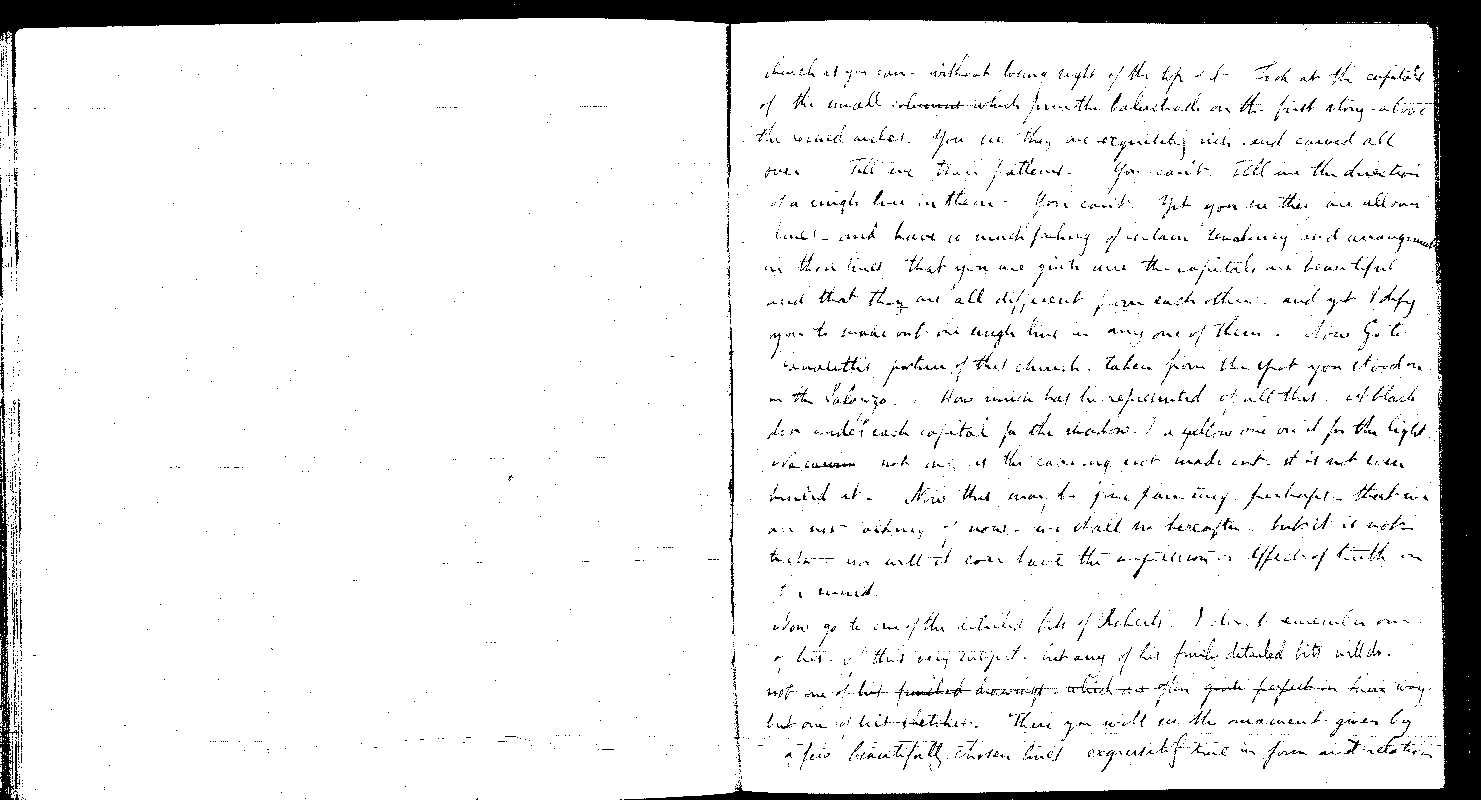 church as you can - without losing sight of the top of it - Look at the capitals
of the small columns which form the balustrade on the first story - above
the round arches. You see they are exquisitely rich and carved all
over Tell me their patterns. You can't. Tell me the direction
of a single line in them - You can't. Yet you see they are all over
lines - and have so much feeling of certain tendency and arrangement
in their lines that you are quite sure the capitals are beautiful
and that they are all different from each other. and yet I defy
you to make out one single line in any one of them - Now Go to
Canaletti's picture of this church. taken from the spot you stood on
in the . How much has he represented of all this. A black
under each capital for the shadow & a yellow one on it for the light.
not only is the carving not made out. it is not even
hinted at - Now this may be fine painting perhaps - that
we are not asking of now - we shall see hereafter. but it is not
truth - nor will it ever have the impression or effect of truth on
the mind.
Now go to one of the detailed bits of Roberts. I don't remember one
of his of this very subject - but any of his finely detailed bits will do.
not one of his finished drawings - which are often quite perfect in their way.
but one of his sketches. There you will see the ornament given by
a few beautifully chosen lines exquisitely true in form and relation